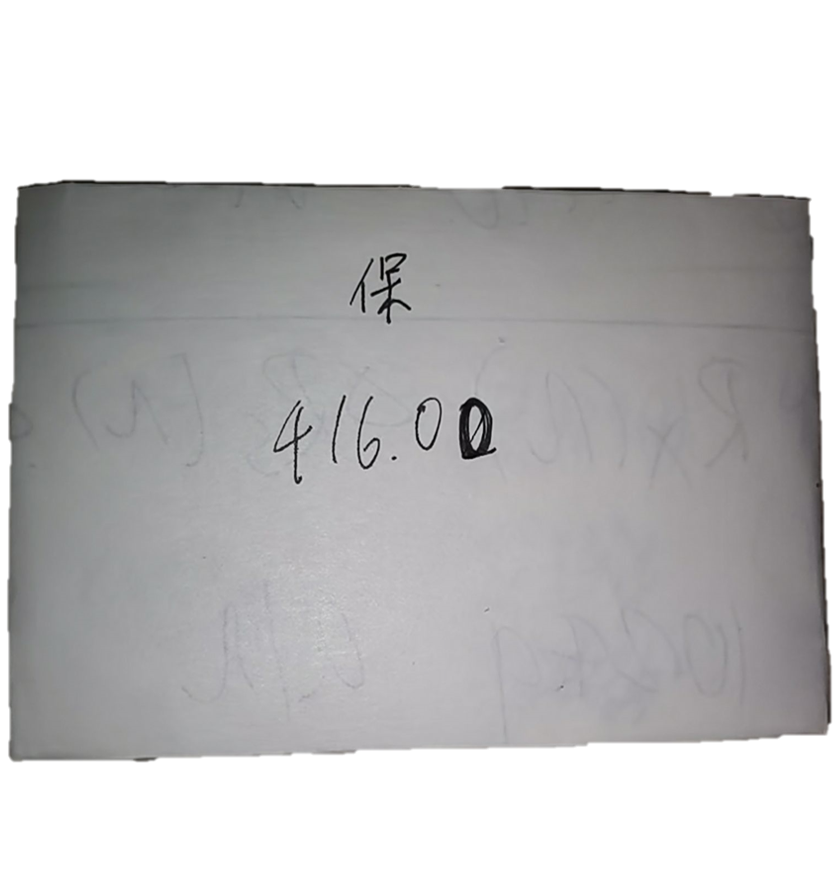 保
416.00